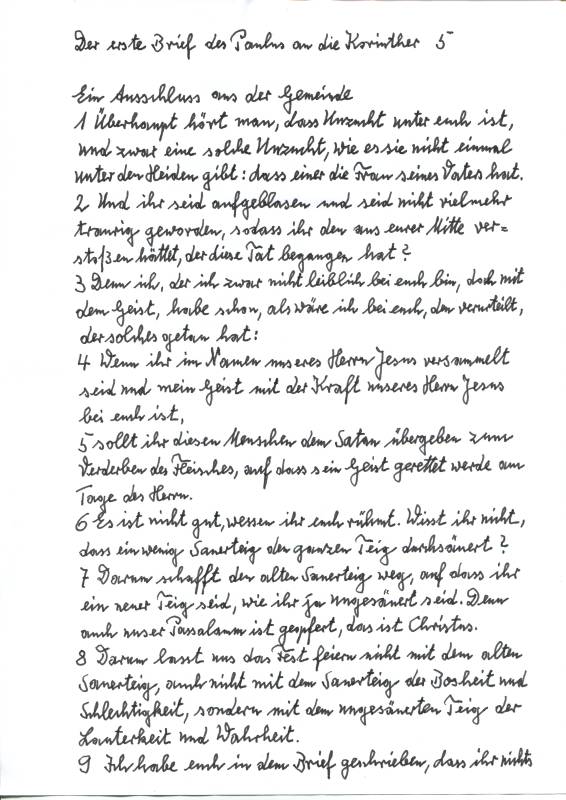 Der erste Brief des Paulus an die Korinther 5
Ein Ausschluss aus der Gemeinde
1 Überhaupt hört man, dass Unzucht unter euch ist,
und zwar eine solche Unzucht, wie es sie nicht einmal
unter den Heiden gibt: dass einer die Frau seines Vaters hat.
2 Und ihr seid aufgeblasen und seid nicht vielmehr
traurig geworden, sodass ihr den aus eurer Mitte ver=
stoßen hättet, der diese Tat begangen hat?
3 Denn ich, der ich zwar nicht leiblich bei euch bin, doch mit
dem Geist, habe schon, als wäre ich bei euch, den verurteilt,
der solches getan hat:
4 Wenn ihr im Namen unseres Herrn Jesus versammelt
seid und mein Geist mit der Kraft unseres Herrn Jesus
bei euch ist,
5 sollt ihr diesen Menschen dem Satan übergeben zum
Verderben des Fleisches, auf dass sein Geist gerettet werde am
Tage des Herrn.
6 Es ist nicht gut, wessen ihr euch rühmt. Wisst ihr nicht,
dass ein wenig Sauerteig den ganzen Teig durchsäuert?
7 Darum schafft den alten Sauerteig weg, auf dass ihr
ein neuer Teig seid, wie ihr ja ungesäuert seid. Denn
auch unser Passalamm ist geopfert, das ist Christus.
8 Darum lasst uns das Fest feiern nicht mit dem alten
Sauerteig, auch nicht mit dem Sauerteig der Bosheit und
Schlechtigkeit, sondern mit dem ungesäuerten Teig der
Lauterkeit und Wahrheit.
9 Ich habe euch in dem Brief geschrieben, dass ihr nichts